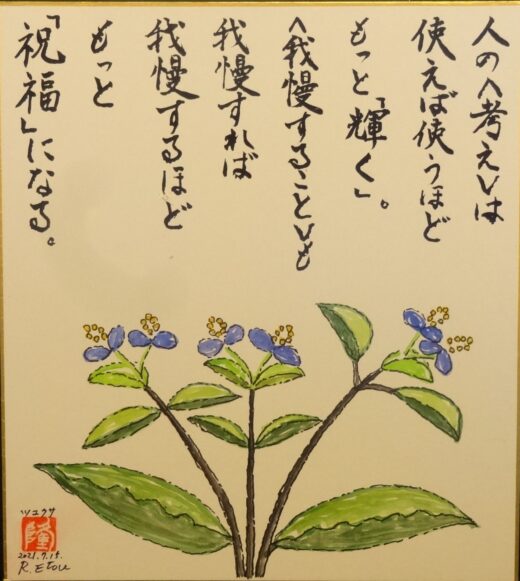 人の〈考え〉は
使えば使うほど
もっと「輝く」。
〈我慢すること〉も
我慢すれば
我慢するほど
もっと
「祝福」になる。
ツユクサ
隆
2021.9.15.
R. Etou